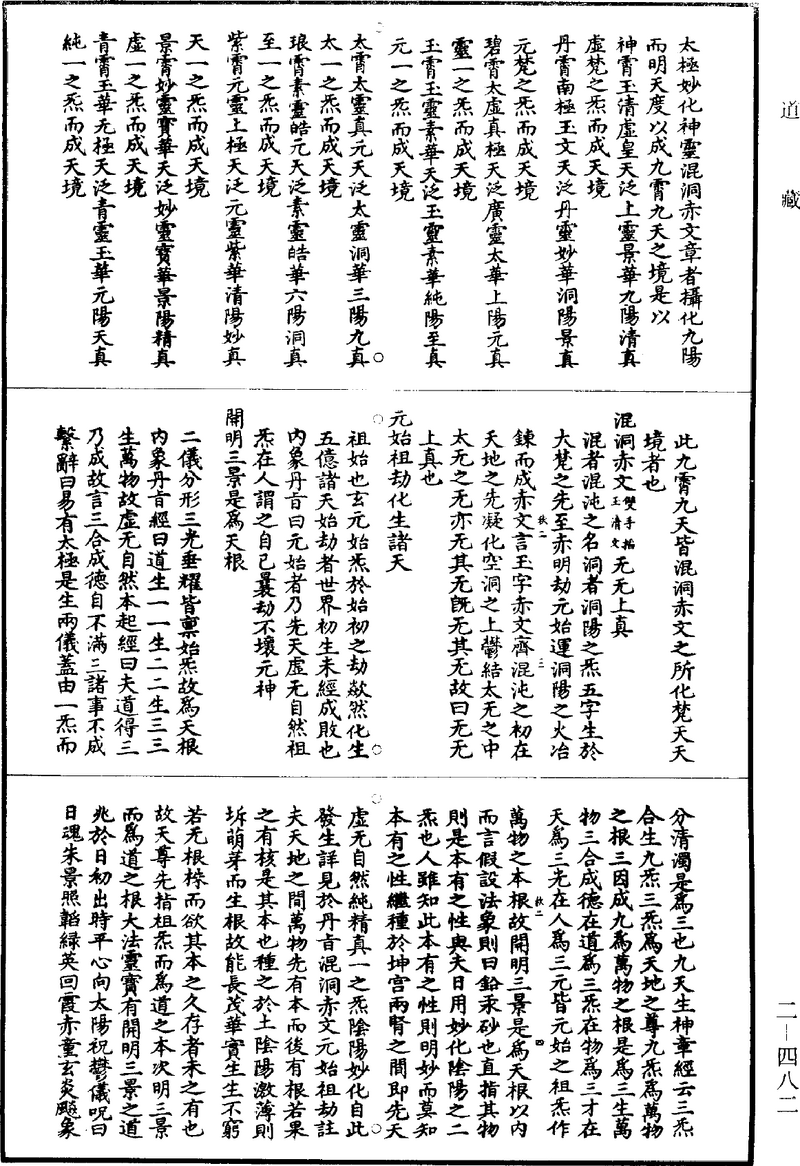 道藏
太極妙化神靈混洞赤文章者攝化九陽
而明天度以成九霄九天之境是以
神霄玉清虛皇天泛上靈景華九陽清真
虛梵之炁而成天境
丹霄南極玉文天泛丹靈妙華洞陽景真
元梵之炁而成天境
碧霄太虛真極天泛廣靈太華上陽元真
靈一之炁而成天境
玉霄玉靈素華天泛玉靈素華純陽至真
元一之炁而成天境
太霄太靈真元天泛太靈洞華三陽九真
太一之炁而成天境
琅霄素靈皓元天泛素靈皓華六陽洞真
至一之炁而成天境
紫霄元靈上極天泛元靈紫華清陽妙真
天一之炁而成天境
景霄妙靈寶華天泛妙靈寶華景陽精真
虛一之炁而成天境
青霄玉華无極天泛青靈玉華元陽天真
純一之炁而成天境
此九霄九天皆混洞赤文之所化梵天天
境者也
混洞赤文雙手掐玉清文无无上真
混者混沌之名洞者洞陽之炁五字生於
大梵之先至赤明劫元始運洞陽之火冶
鍊而成赤文言玉字赤文齊混沌之初在
天地之先凝化空洞之上鬱結太无之中
太无之无亦无其无既无其无故曰无无
上真也
元始祖劫化生諸天
祖始也玄元始炁於始初之劫歘然化生
五億諸天始劫者世界初生未經成敗也
內象丹旨曰元始者乃先天虛无自然祖
炁在人謂之自己曩劫不壞元神
開明三景是為天根
二儀分形三光垂耀皆稟始炁故為天根
內象丹旨經曰道生一一生二二生三三
生萬物故虛无自然本起經曰夫道得三
乃成故言三合成德自不滿三諸事不成
繫辭曰易有太極是生兩儀蓋由一炁而
分清濁是為三也九天生神章經云三炁
合生九炁三炁為天地之尊九炁為萬物
之根三因成九為萬物之根是為三生萬
物三合成德在道為三炁在物為三才在
天為三光在人為三元皆元始之祖炁作
萬物之本根故開明三景是為天根以內
而言假設法象則曰鉛汞砂也直指其物
則是本有之性與夫日用妙化陰陽之二
炁也人雖知此本有之性則明妙而莫知
本有之性繼種於坤宮兩腎之間即先天
虛无自然純精真一之炁陰陽妙化自此
發生詳見於丹旨混洞赤文元始祖劫註
夫天地之間萬物先有本而後有根若果
之有核是其本也種之於土陰陽激薄則
坼萌芽而生根故能長茂華實生生不窮
若无根核而欲其本之久存者未之有也
故天尊先指祖炁而為道之本次明三景
而為道之根大法靈寶有開明三景之道
兆於日初出時平心向太陽祝鬱儀呪曰
日魂朱景照韜綠英回霞赤童玄炎飈象
二—四八二